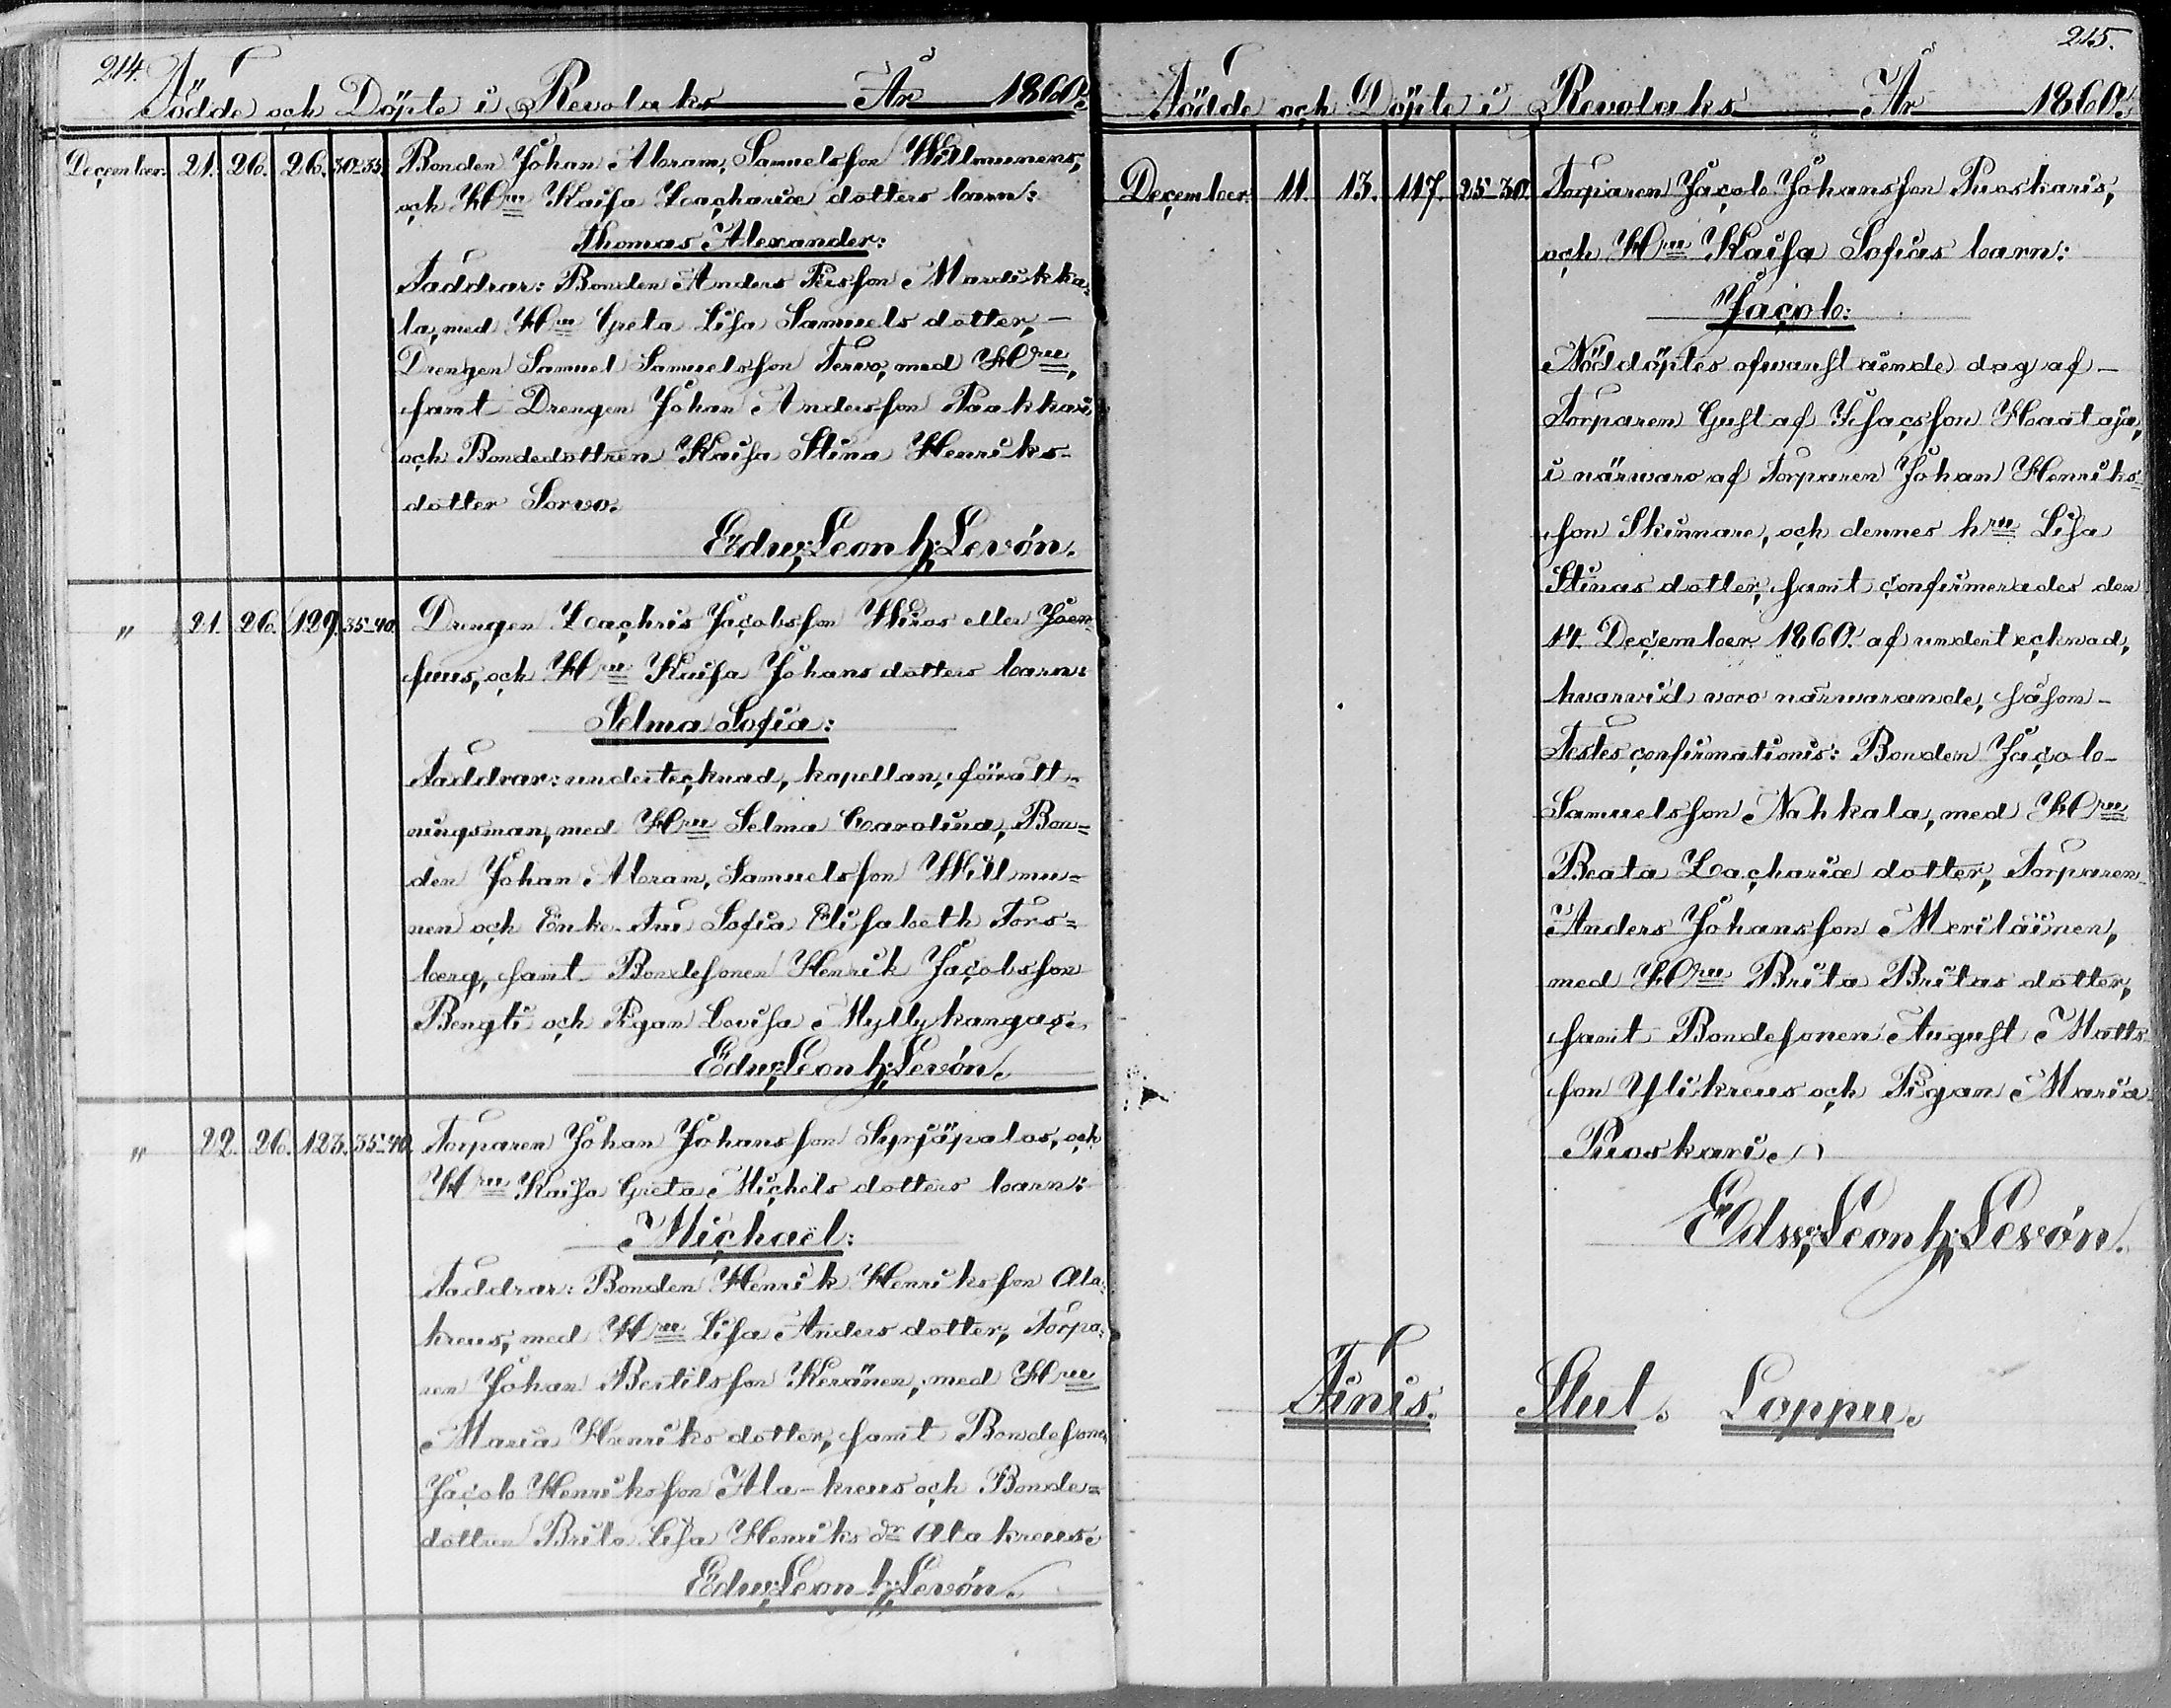 214.
Födde och Döpte i Revolaks År 1860.
December. 21. 26. 26. 30-35. Bonden Johan Abram, Samuelsson Willmunens,
och Hru Kaisa Zachariæ dotters barn:
Thomas Alexander:
Faddrar: Bonden Anders Persson Mardikka-
la, med Hru Greta Lisa Samuels dotter, –
Drengen Samuel Samuelsson Terwo, med Hru,
samt Drengen Johan Andersson Paakkari
och Bondedottren Kaisa Stina Henriks-
dotter Sorvo.
Edw. Leonh. Levón.
" 21. 26. 129. 35-40. Drengen Zachris Jacobsson Wiros eller Joen-
suus, och Hru Kaisa Johans dotters barn:
Selma Sofia:
Faddrar: undertecknad, kapellan, förrätt-
ningsman, med Hru Selma Carolina, Bon=
den Johan Abram, Samuelsson Willmu=
nen och Enke-Fru Sofia Elisabeth Fors=
berg, samt Bondesonen Henrik Jacobsson
Bengti och Pigan Lovisa Myllykangas.
Edw. Leonh. Levón.
" 22. 26. 123. 35-40. Torparen Johan Johansson Syrjäpalos, och
Hru Kaisa Greta Michels dotters barn:
Michaël:
Faddrar: Bonden Henrik Henriksson Ala-
kreus, med Hru Lisa Anders dotter, Torpa-
ren Johan Bertilsson Keränen, med Hru
Maria Henriks dotter, samt Bondesonen
Jacob Henriksson Ala-kreus och Bonde=
dottren Brita Lisa Henriks dr Ala kreus.
Edw. Leonh. Levón.
215.
Födde och Döpte i Revolaks År 1860.
December. 11. 13. 117. 25-30. Torparen Jacob Johansson Puoskaris,
och Hru Kaisa Sofias barn:
Jacob:
Nöddöptes ofwanstående dag af –
Torparen Gustaf Isacsson Haataja,
i närwaro af Torparen Johan Henriks-
son Skinnare, och dennes hru Lisa
Stinas dotter, samt confirmerades den
14. December 1860. af undertecknad,
hwarvid voro närwarande, såsom –
Testes confirmationis: Bonden Jacob –
Samuelsson Nahkala, med Hru
Beata Zachariæ dotter, Torparen
Anders Johansson Meriläinen,
med Hru Brita Britas dotter,
samt Bondesonen August Matts-
son Ylikreus och Pigan Maria
Puoskari.
Edw. Leonh. Levón.
Finis. Slut. Loppu.